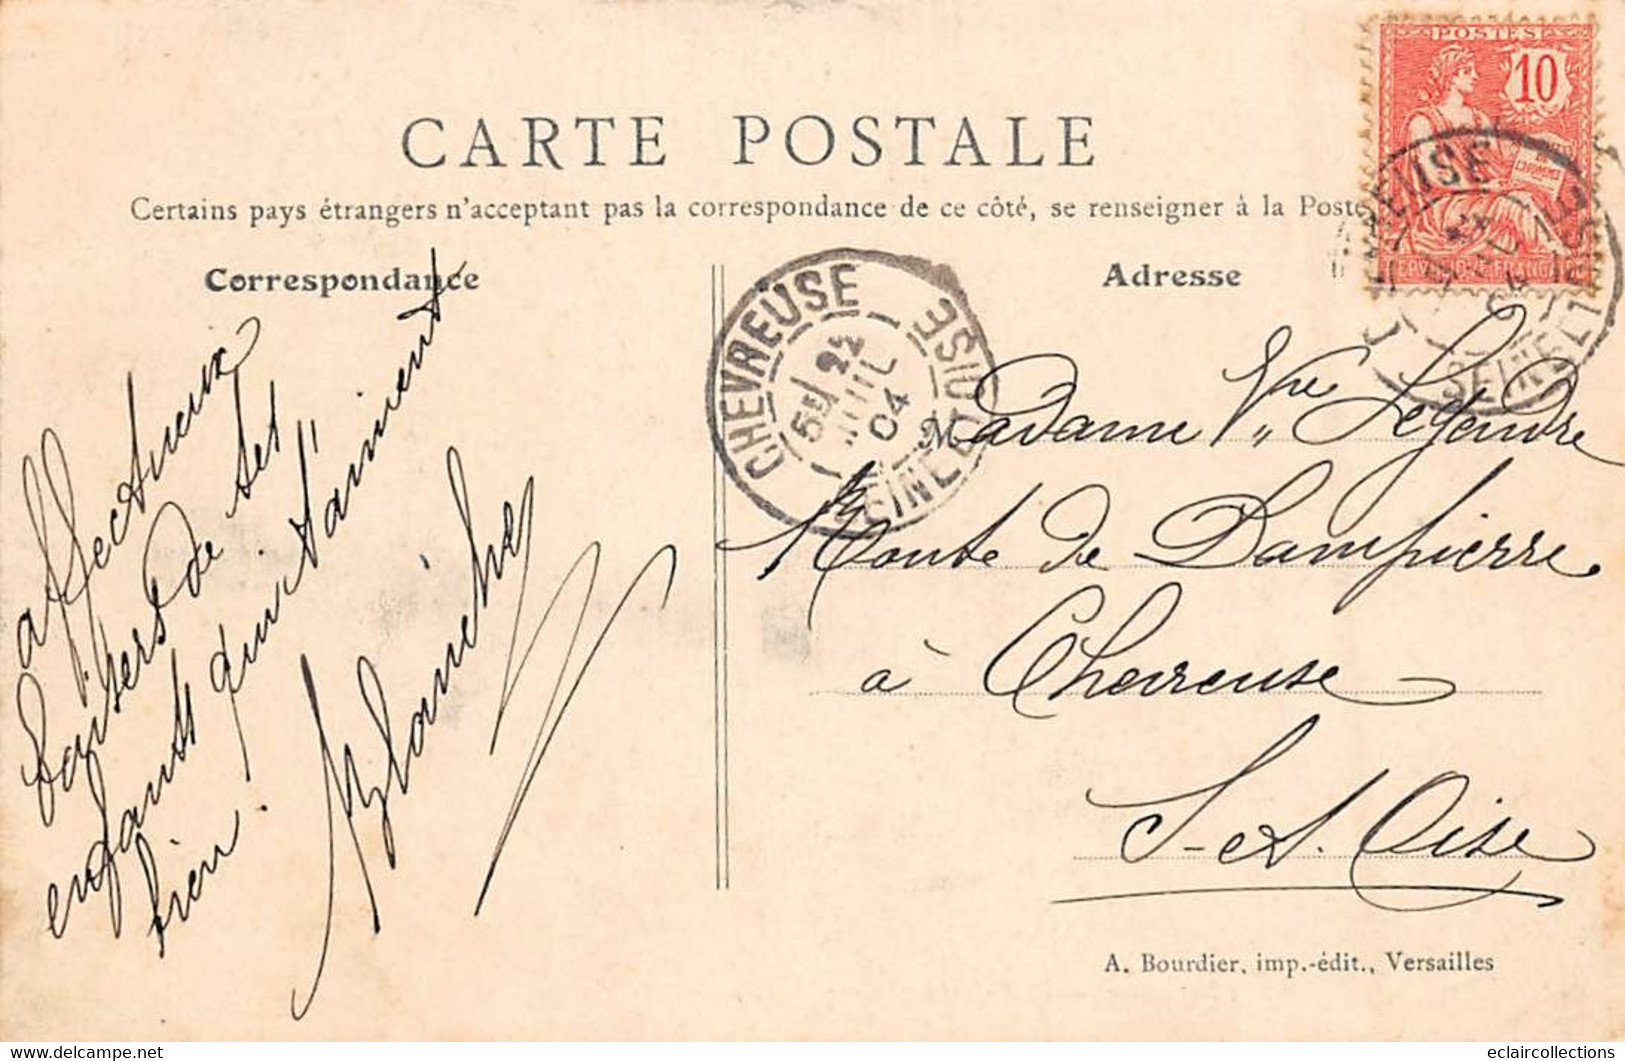 POSTES
10
CARTE POSTALE
Certains pays étrangers n'acceptant pas la correspondance de ce côté, se renseigner à la Poste
Correspondance
Adresse
CHEVREUSE
5E / 22
JUIL
04
SEINE ET OISE
affectueux
baisers de ses
enfants qui t'aiment
bien.
Blanche
Madame Vve Legendre
Route de Dampierre
à Chevreuse
S-et-Oise
A. Bourdier, imp.-édit., Versailles
eclaircollections
delcampe.net